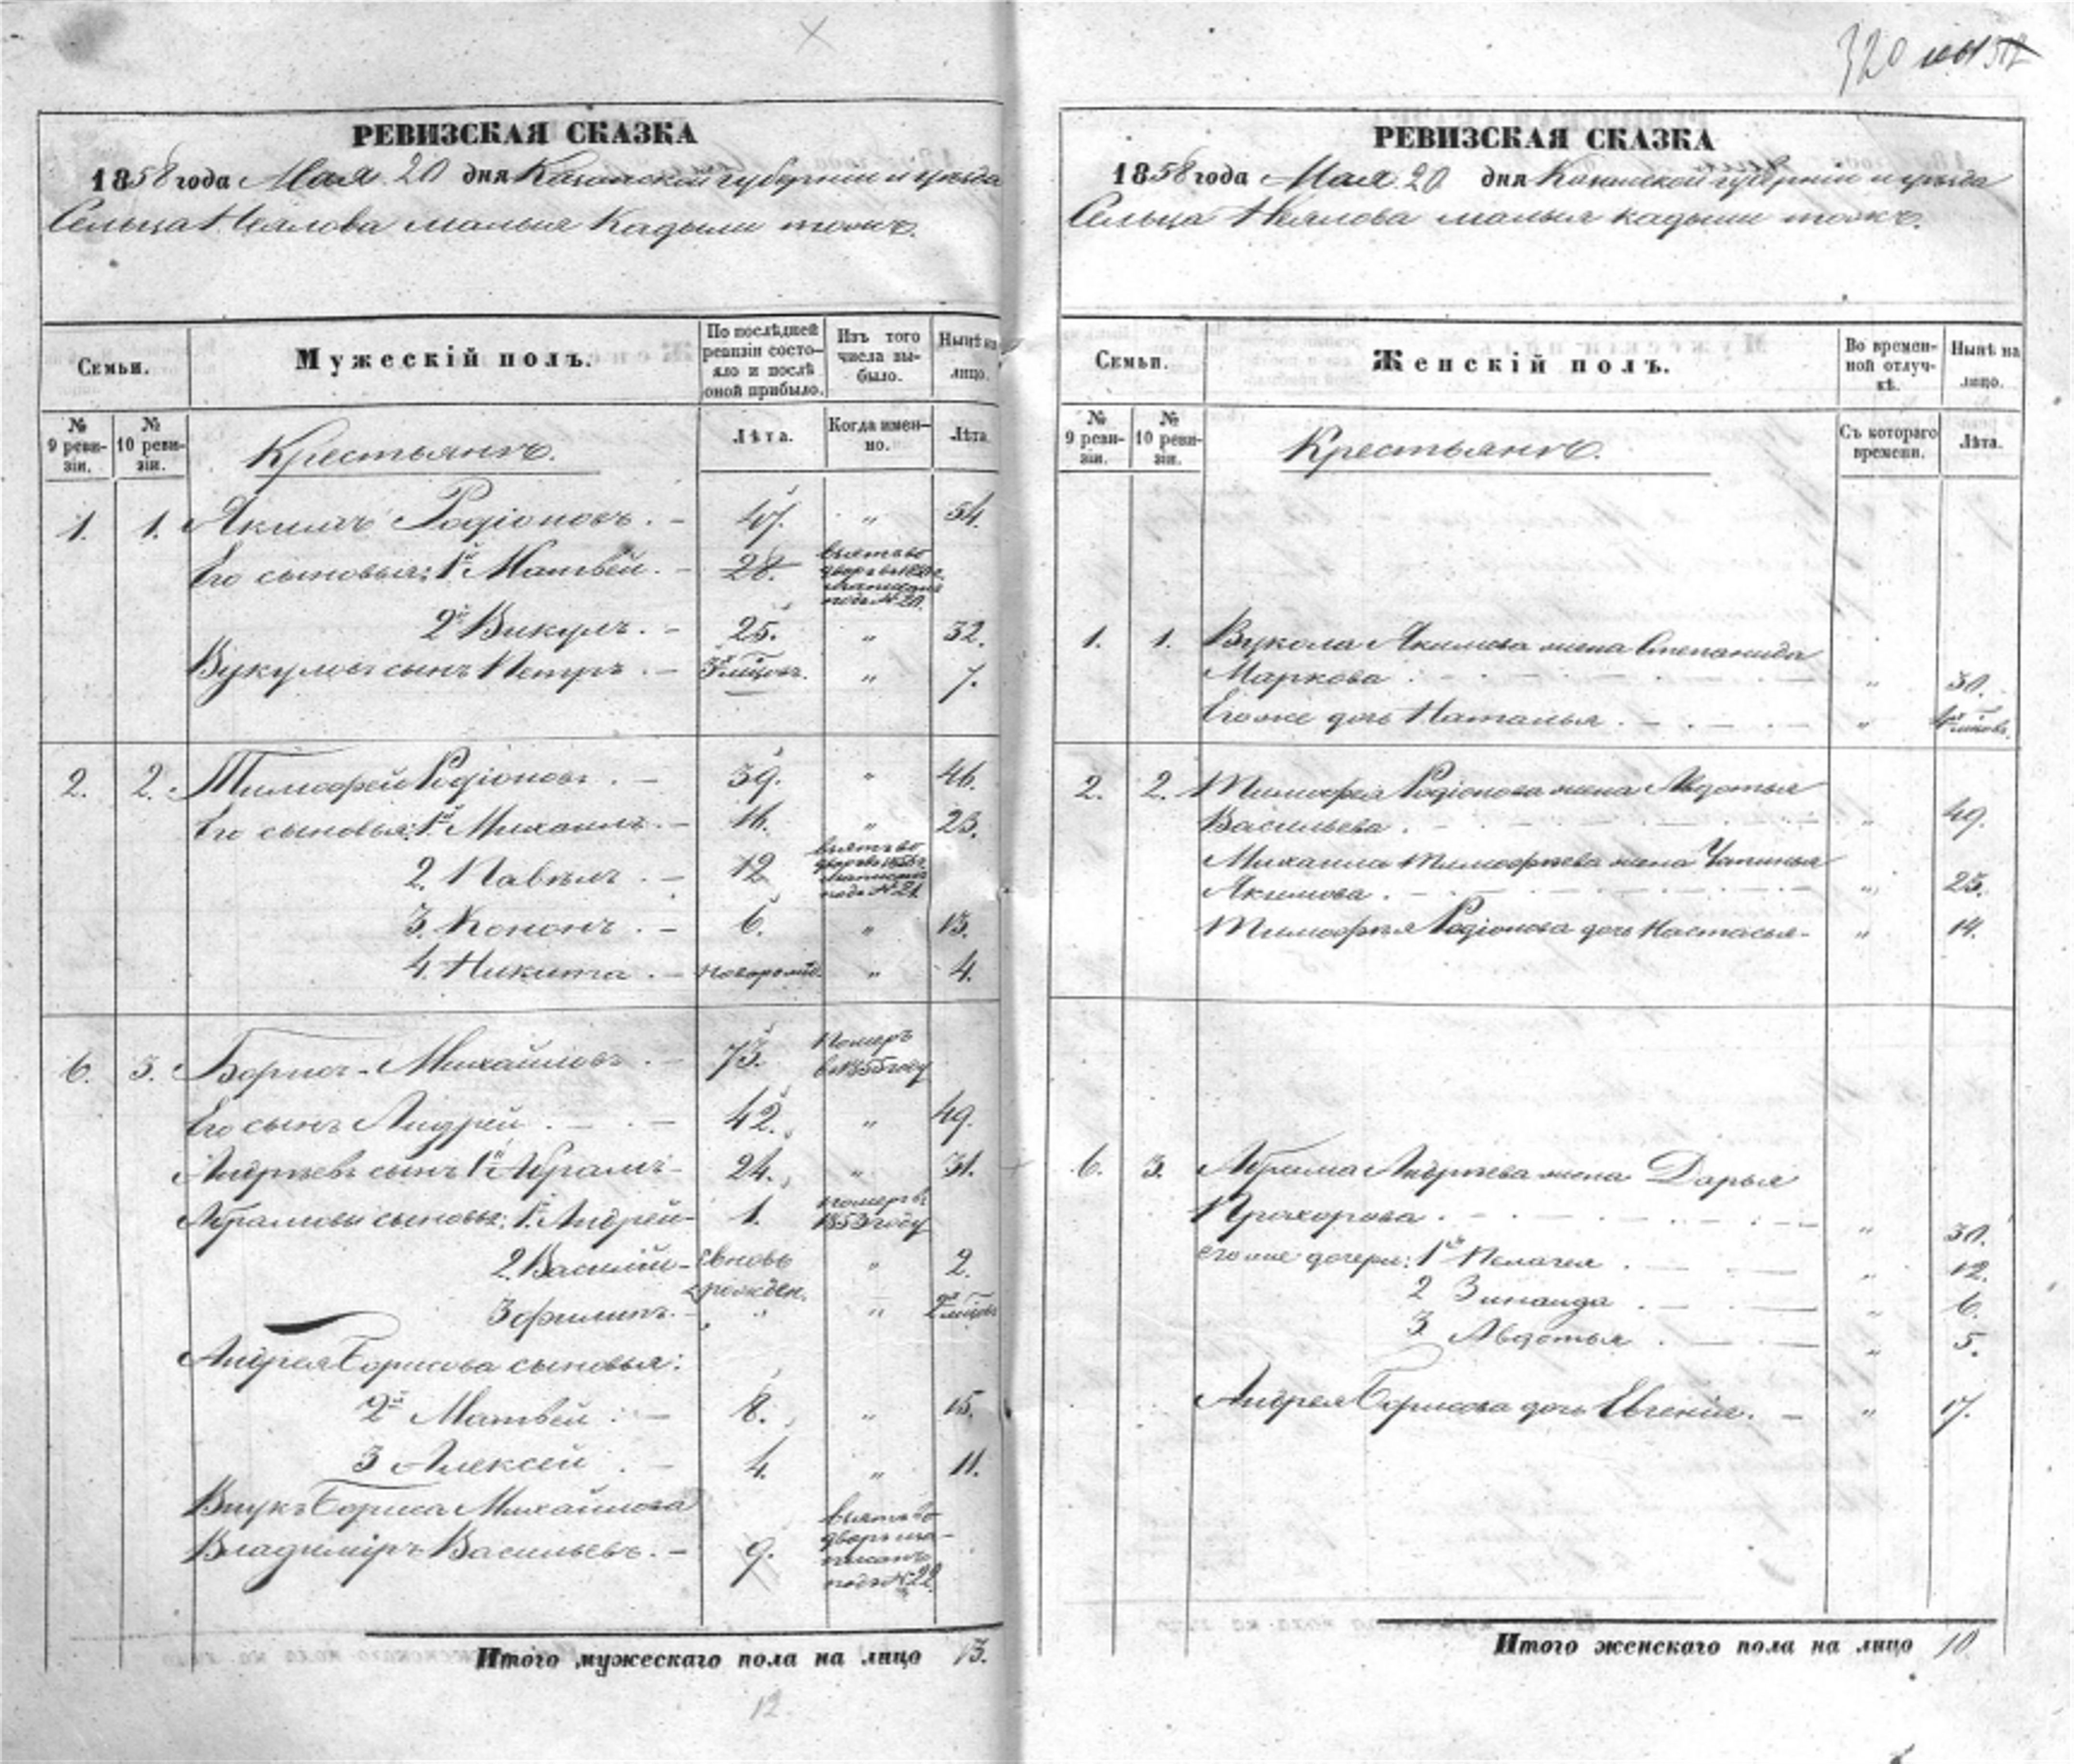 320
РЕВИЗСКАЯ СКАЗКА
1858 года Мая 20 дня Казанской губернии и уезда
Сельца Неялова малыя Кадыши тожъ.
Семьи.
Мужескій полъ.
По послѣдней ревизіи состояло и послѣ оной прибыло.
Изъ того числа выбыло.
Нынѣ на лицо.
№ 9 ревизіи.
№ 10 ревизіи.
Крестьянъ.
Лѣта.
Когда именно.
Лѣта.
1. 1. Акимъ Родіоновъ. 47. " 54.
Его сыновья: 1й Матвѣй. 28. взятъ во дворъ
подъ № 20.
2й Викулъ. 25. " 32.
Вукуловъ сынъ Петръ. 3х мѣсяцовъ. " 7.
2. 2. Тимофей Родіоновъ. 39. " 46.
Его сыновья: 1й Михаилъ. 16. " 23.
2. Павелъ. 12 взятъ во
подъ № 21
3. Кононъ. 6. " 13.
4. Никита. новорожд. " 4.
6. 3. Борисъ Михайловъ. 73. померъ
въ 1855 году
Его сынъ Андрей. 42. " 49.
Андреевъ сынъ 1й Абрамъ 24. " 31.
Абрамовы сыновья: 1й Андрей 1. померъ въ
1853 году
2. Василій вновь " 2.
рожден.
3 Филипъ. " " 2х мѣсяцовъ
Андрея Борисова сыновья:
2й Матвѣй 8. " 15.
3 Алексѣй 4. " 11.
Внукъ Бориса Михайлова
Владиміръ Васильевъ. 9. взятъ во
дворъ и написанъ
подъ № 22.
Итого мужескаго пола на лицо 13.
12.
РЕВИЗСКАЯ СКАЗКА
1858 года Мая 20 дня Казанской губерніи и уезда
Сельца Неялова малыя кадыши тожъ.
Семьи.
Женскій полъ.
Во временной отлучкѣ.
Нынѣ на лицо.
№ 9 ревизіи.
№ 10 ревизіи.
Крестьянъ.
Съ котораго времени.
Лѣта.
1. 1. Вукола Акимова жена Степанида
Маркова " 30.
Его же дочь Наталья " 4х мѣсяцовъ.
2. 2. Тимофея Родіонова жена Авдотья
Васильева. " 49.
Михаила Тимофеева жена Устинья
Акимова. " 25.
Тимофея Родіонова дочь Настасья " 14.
6. 3. Абрама Андреева жена Дарья
Прохорова. " 30.
его же дочери: 1я Пелагея " 12.
2 Зинаида " 6.
3. Авдотья " 5.
Андрея Борисова дочь Евгенія. " 17.
Итого женскаго пола на лицо 10.